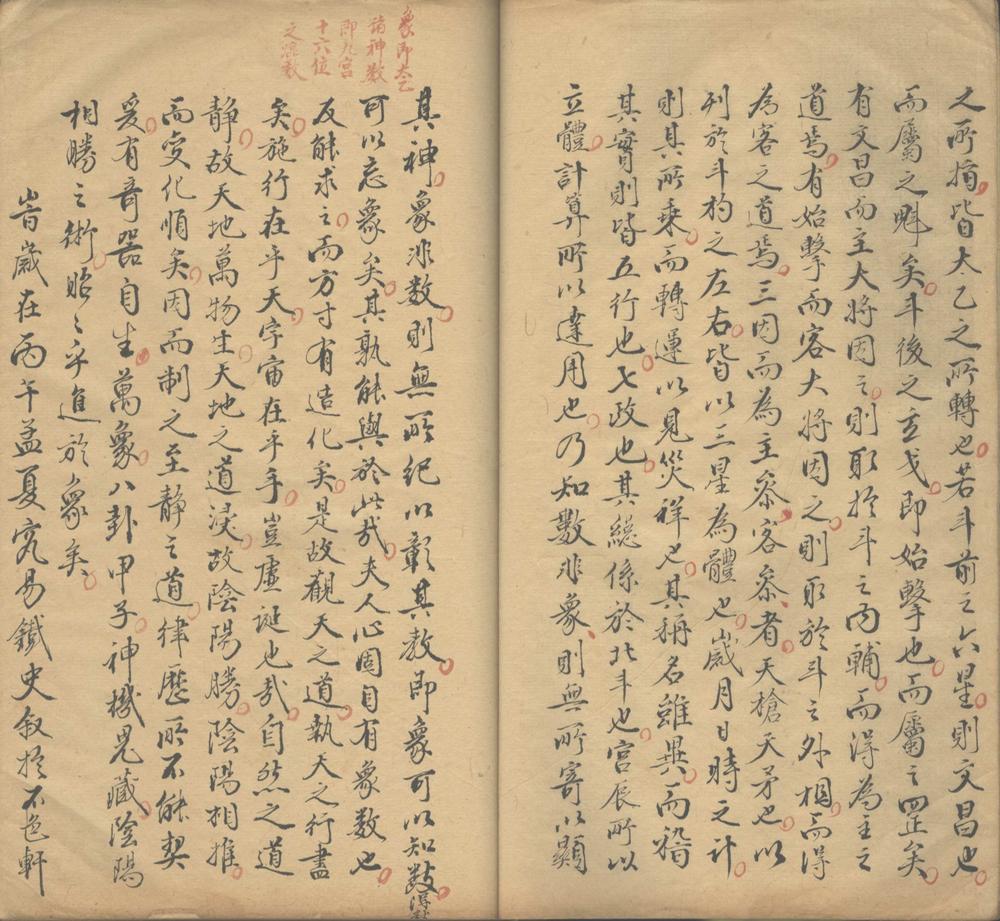 之所指皆太乙之所轉也若斗前之六星則文昌也
而屬之魁矣斗後之玄戈即始擊也而屬之罡矣
有文昌而主大將因之則取於斗之內輔而得為主之
道焉有始擊而客大將因之則取於斗之外相而得
為客之道焉三因而為主參客參者天槍天矛也以
列於斗杓之左右皆以三星為體也歲月日時之計
則其所乘而轉運以見災祥也其稱名雖異而
其實則皆五行也七政也其總係於北斗也宮辰所以
立體計算所以達用也乃知數非象則無所寄以顯
象即太乙
諸神數
即九宮
十六位
之數
其神象非數則無所紀以彰其教即象可以知數
可以忘象矣其孰能與於此哉夫人心固自有象數也
反能求之而方寸有造化矣是故觀天之道執天之行盡
矣施行在乎天宇宙在乎手豈虛誕也哉自然之道
静故天地萬物生天地之道浸故陰陽勝陰陽相推
而變化順矣因而制之至静之道律歷所不能契
爰有奇器自生萬象八卦甲子神機鬼藏陰陽
相勝之術昭々乎進於象矣
峕歲在丙午孟夏易鐵史叙於不色軒